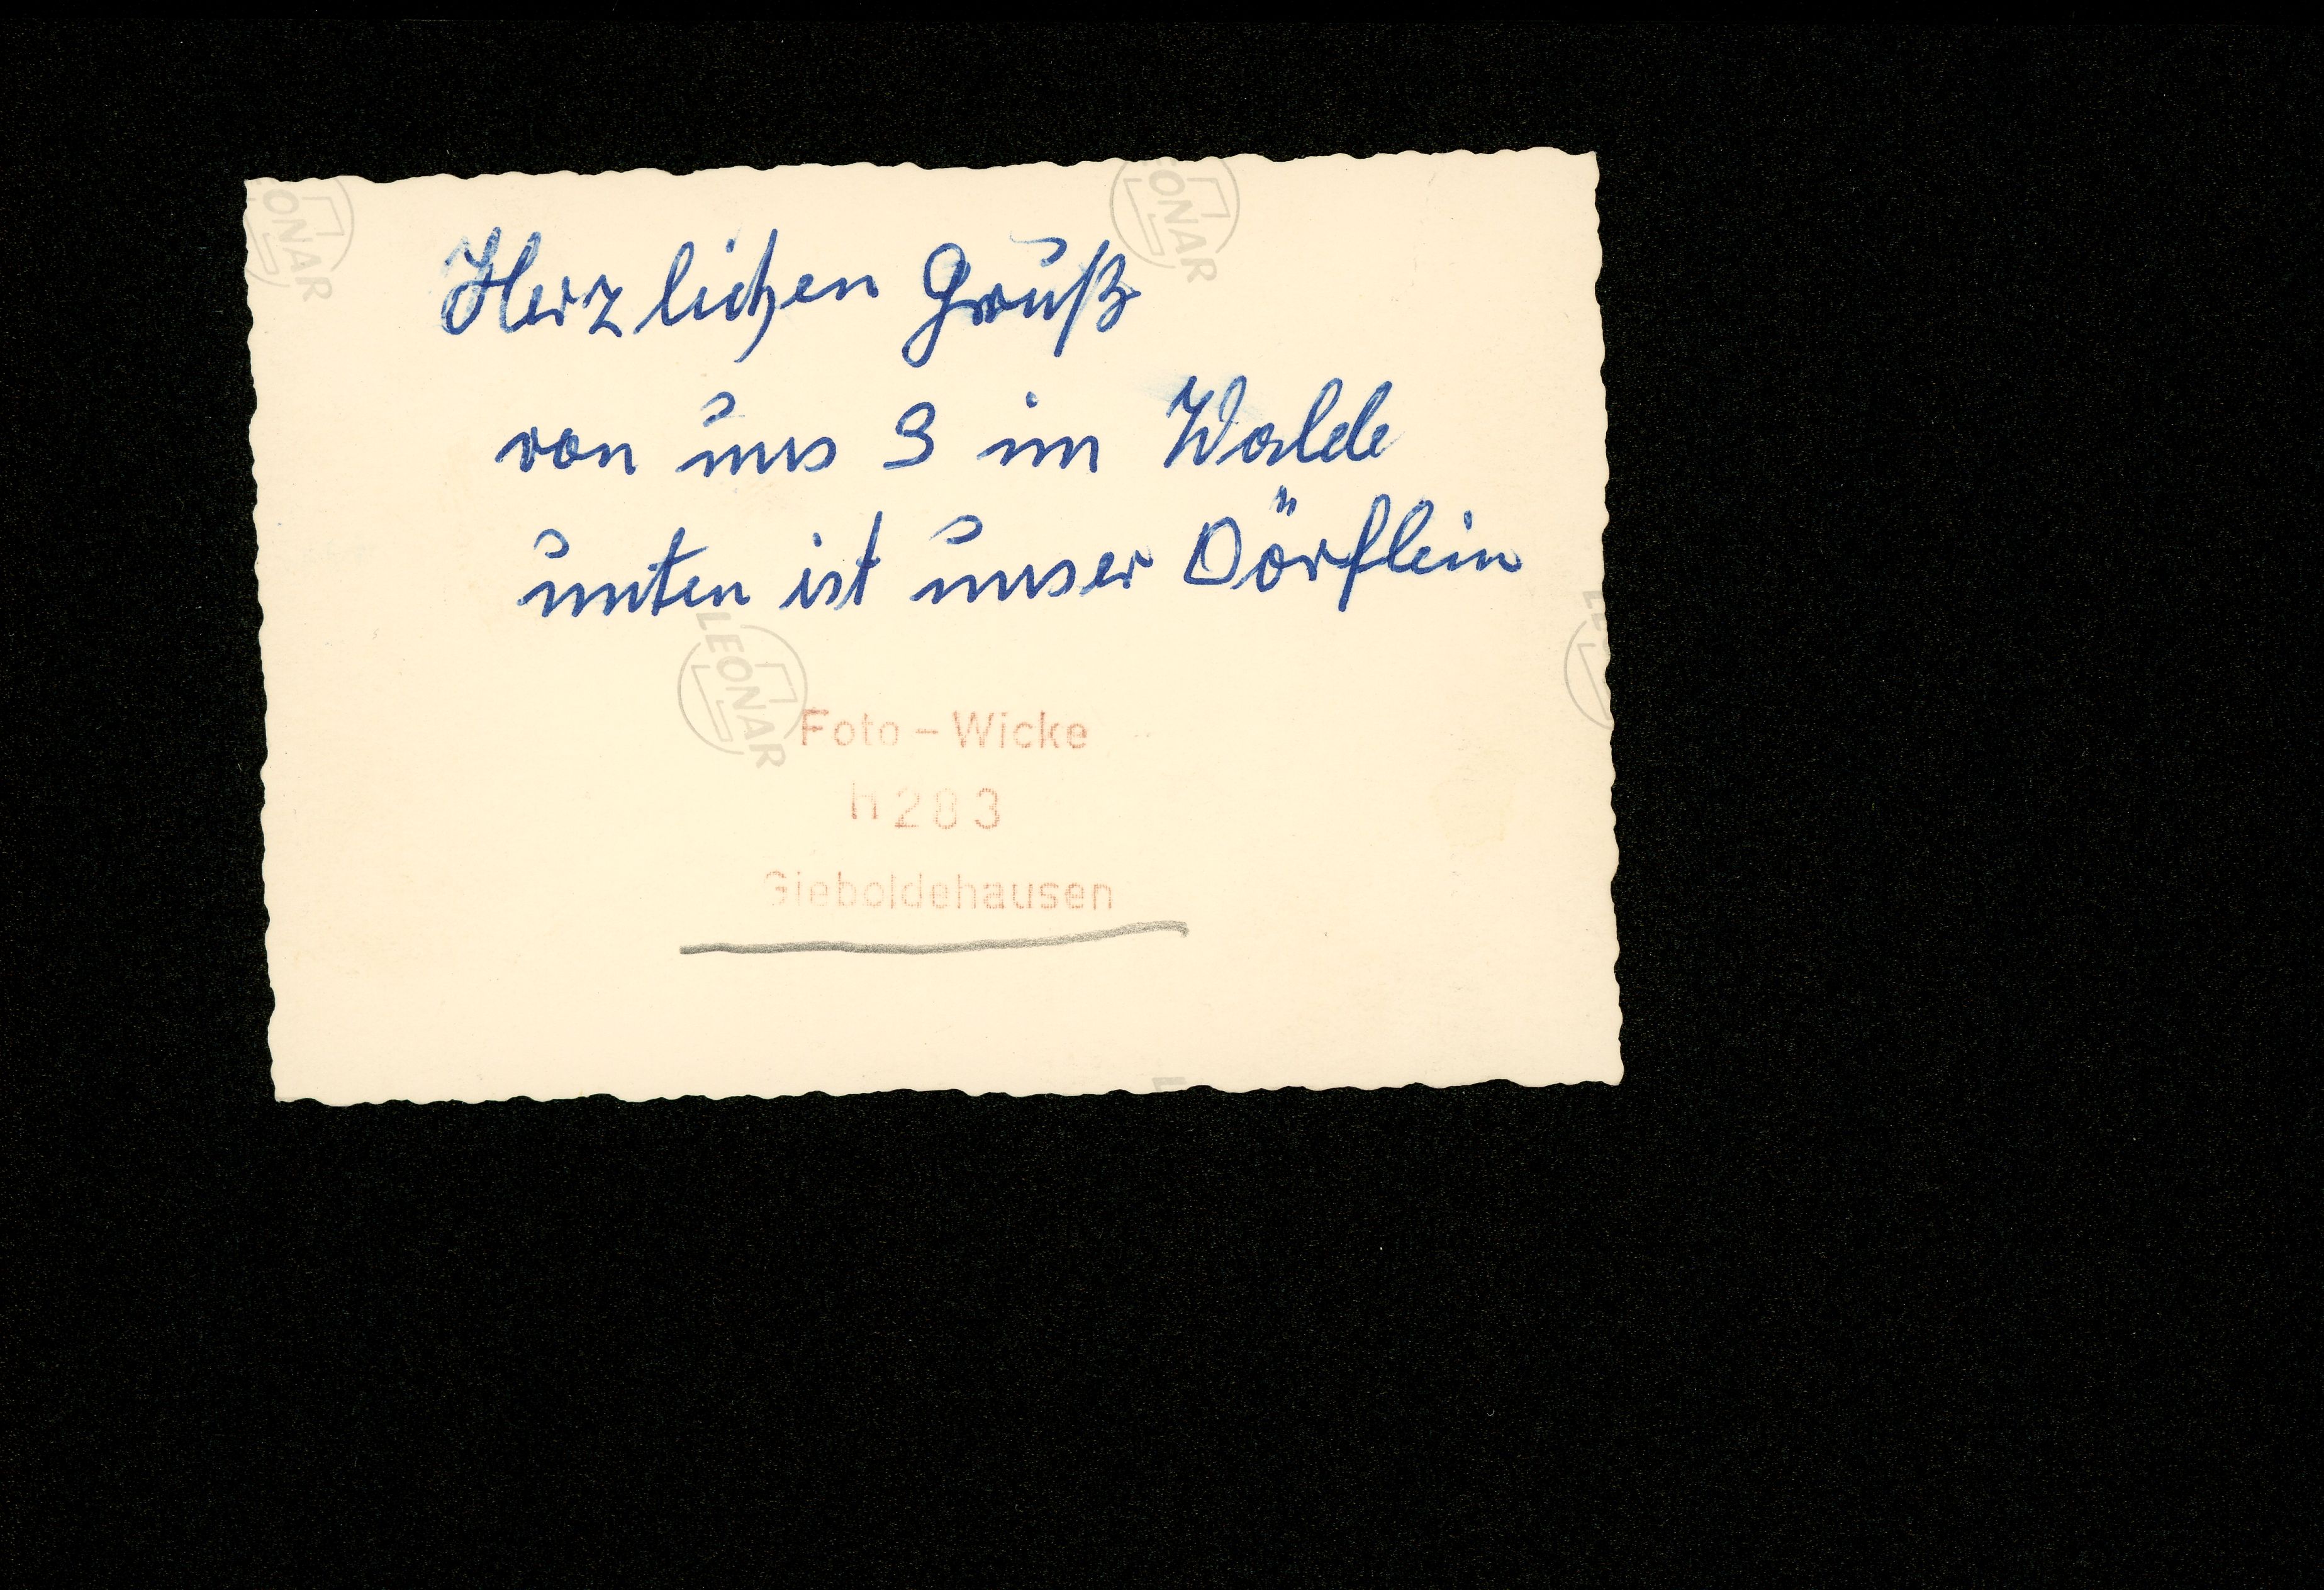 Herzlichen Gruß
von uns 3 im Walde
unten ist unser Dörflein
LEONAR
Foto - Wicke
h 283
Gieboldehausen